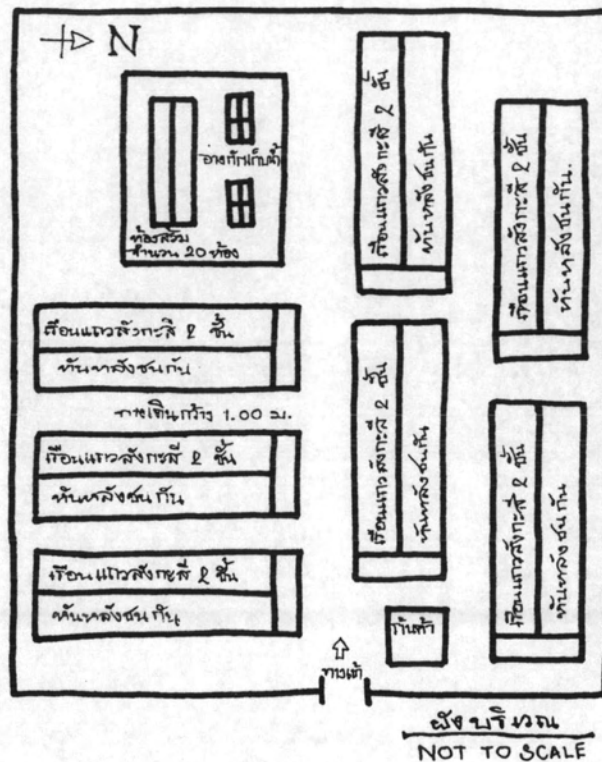 N
อาบก๊กเก็บน้ำ
ห้องส้วม
จำนวน 20 ห้อง
เรือนแถวสังกะสี 2 ชั้น
หันหลังชนกัน
เรือนแถวสังกะสี 2 ชั้น
หันหลังชนกัน.
เรือนแถวสังกะสี 2 ชั้น
หันหลังชนกัน
ทางเดินกว้าง 1.00 ม.
เรือนแถวสังกะสี 2 ชั้น
หันหลังชนกัน
เรือนแถวสังกะสี 2 ชั้น
หันหลังชนกัน
เรือนแถวสังกะสี 2 ชั้น
หันหลังชนกัน
เรือนแถวสังกะสี 2 ชั้น
หันหลังชนกัน
ร้านค้า
ทางเข้า
ผังบริเวณ
NOT TO SCALE